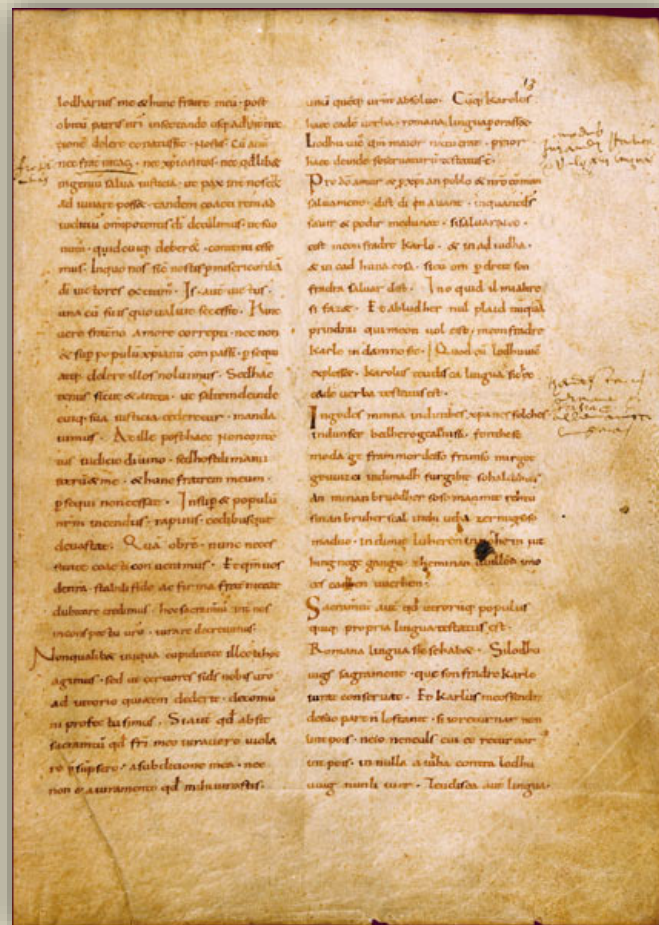 lodharius me & hunc fratrē meū · post
obitū patris nr̄i insectando usq; ad inter
tionē delere conatus sit · nostis · Cū aut̄
nec fraternitas · nec xp̄ianitas · nec qd̄libet
ingeniū salva iusticia · ut pax int̄ nos e&
adiuvare posset · tandem coacti rem ad
iudiciū omnipotentis dī detulimus · ut suo
nutu · quid cuiq; deber& · contenti esse
mus · In quo nos sic̄ nostis p̄ misericordiā
dī victores extitim̄ · Is aut̄ victus ·
una cū suis quo valuit secessit · Hinc
vero fraterno amore correpti · nec non
& sup̄ populū xp̄ianū conpassi · p̄sequi
atq; delere illos noluimus · Sed hac
tenus sicut & antea · ut saltem deinde
cuiq; sua iusticia cederetur · manda
vimus · At ille post haec non conten
tus iudicio divino · sed hostili manu
iterū & me · & hunc fratrem meum ·
p̄sequi non cessat · Insup̄ & populū
nr̄m incendiis · rapinis · cedibusque
devastat · Quā obrē · nunc neces
sitate coacti convenimus · Et qm̄ vos
de nr̄a stabili fide ac firma fraternitate
dubitare credimus · hoc sacramtū int̄ nos
in conspectu vr̄o · iurare decrevimus ·
Non qualibet iniqua cupiditate illecti hoc
agimus · sed ut certiores si ds̄ nobis vr̄o
adiutorio quietem dederit · de comū
ni profectu simus · Si aut̄ qd̄ absit
sacramtū qd̄ fr̄i meo iuravero viola
re p̄sūpsero · a subdicione mea · nec
non & a iuramento qd̄ mihi iurastis ·
13
unū quēq; vr̄m absolvo · Cūq; karolus
haec eadē verba · romana lingua porasset
Lodhuvic̄ qm̄ maior natu erat · prior
haec deinde se servaturū testatus ē ·
Pro dō amur & p xp̄ian poblo & nr̄o cōmun
salvament · dist di in avant · inquantds̄
savir & podir medunat · si salvaraieo ·
cist meon fradre karlo · & in ad iudha ·
& in cad huna cosa · sicū om p dreit son
fradra salvar dist · In o quid il mialtre
si faz& · Et abludher nul plaid nūquā
prindrai qui meon vol cist · meon fradre
karle in damno sit · Quod cū lodhuvic̄
explesset · karolus teudisca lingua sic̄ ec
eadē verba testatus est ·
In godes minna ind in thes xp̄anes folches
ind unser bedhero gealtnissi · fon these
moda ge frammordesso framso mirgot
gewizci indi madh furgibit so hald ih tes
an minan bruodher soso man mit rehtu
sinan bruher scal in thi utha zermig so so
maduo · indi mit luheren in no hein iut
hing nege gango · zhe minan uuillon imo
ce scadhen uuerhen ·
Sacramtū aut̄ qd̄ utrorūq; populus
quiq; propria lingua testatus est ·
Romana lingua sic̄ se hab& · Si lodhu
uigs sagrament · que son fradre karlo
iurat conservat · Et karlus meossendra
desuo partn̄ lostanit · si ioreturnar non
lint pois · neio neneuls cui eo returnar
int pois · in nulla aiudha contra lodhu
uuig nunli iuer · Teudisca aut̄ lingua ·